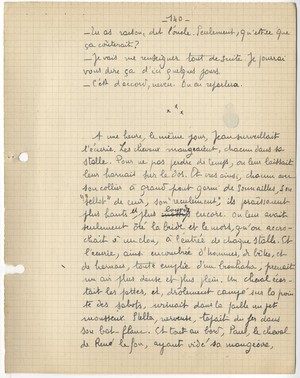 -140-
- Tu as raison, dit l'oncle. Seulement, qu'est-ce que
ça coûterait ?
- Je vais me renseigner tout de suite. Je pourrai
vous dire ça d'ici quelques jours.
- C'est d'accord, neveu. On en reparlera.
* * *
A une heure, le même jour, Jean surveillait
l'écurie. Les chevaux mangeaient, chacun dans sa
stalle. Pour ne pas perdre de temps, on leur laissait
leur harnais sur le dos. Et vus ainsi, chacun avec
son collier à grand pont garni de sonnailles, son
de cuir, son ils paraissaient
plus hauts et plus lourds encore. On leur avait
seulement ôté la bride et le mors, qu'on accro-
chait à un clou, à l'entrée de chaque stalle. Et
l'écurie, ainsi encombrée d'hommes, de bêtes, et
de harnais, toute emplie d'un brouhaha, prenait
un air plus dense et plus plein. Un cheval écar-
tait les pattes, et, drôlement campé sur la poin-
te des sabots, urinait dans la paille un jet
mousseux. Stella, nerveuse, tapait du fer dans
son bat-flanc. Et tout au bout, Paul, le cheval
de René le fou, ayant vidé sa mangeoire,